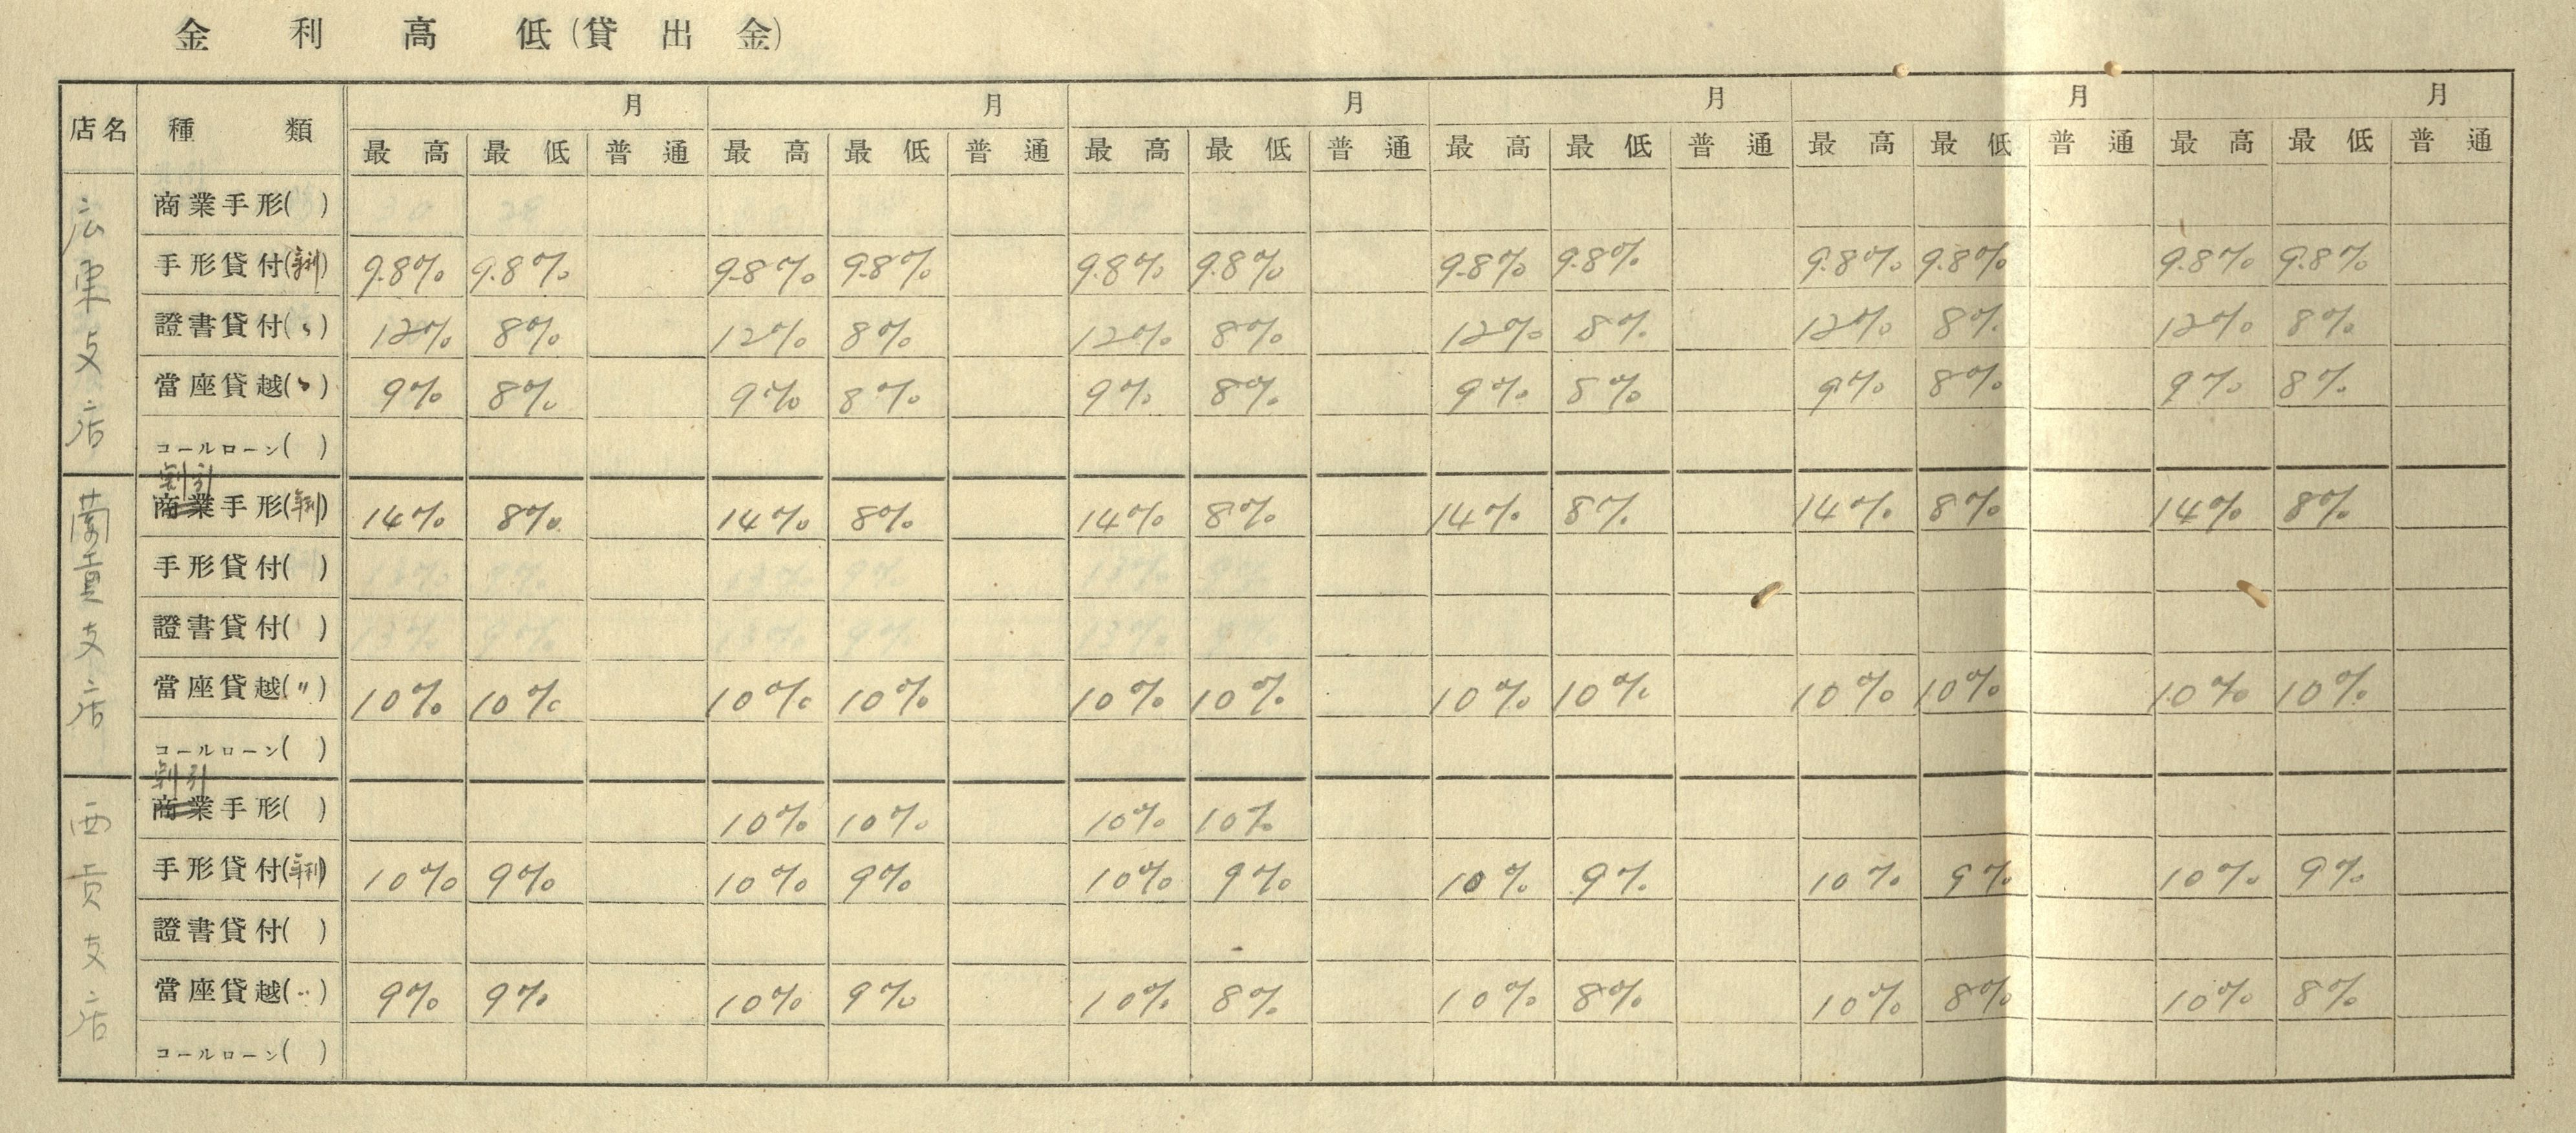 金利高低(貸出金)
店名 種類 月 月 月 月 月 月
最高 最低 普通 最高 最低 普通 最高 最低 普通 最高 最低 普通 最高 最低 普通 最高 最低 普通
広東支店
商業手形( )
手形貸付(年利) 9.8% 9.8% 9.8% 9.8% 9.8% 9.8% 9.8% 9.8% 9.8% 9.8% 9.8% 9.8%
證書貸付(〃) 12% 8% 12% 8% 12% 8% 12% 8% 12% 8% 12% 8%
當座貸越(〃) 9% 8% 9% 8% 9% 8% 9% 8% 9% 8% 9% 8%
コールローン( )
蘭貢支店
割引
商業手形(年利) 14% 8% 14% 8% 14% 8% 14% 8% 14% 8% 14% 8%
手形貸付( )
證書貸付( )
當座貸越(〃) 10% 10% 10% 10% 10% 10% 10% 10% 10% 10% 10% 10%
コールローン( )
西貢支店
割引
商業手形( ) 10% 10% 10% 10%
手形貸付(年利) 10% 9% 10% 9% 10% 9% 10% 9% 10% 9% 10% 9%
證書貸付( )
當座貸越(〃) 9% 9% 10% 9% 10% 8% 10% 8% 10% 8% 10% 8%
コールローン( )